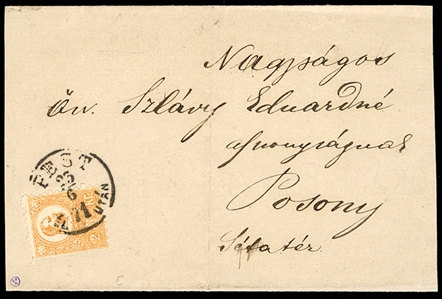 Nagyságos
Özv. Szlávy Eduardné
asszonyságnak
Posony
Sétatér.
PEST
71
UTÁN